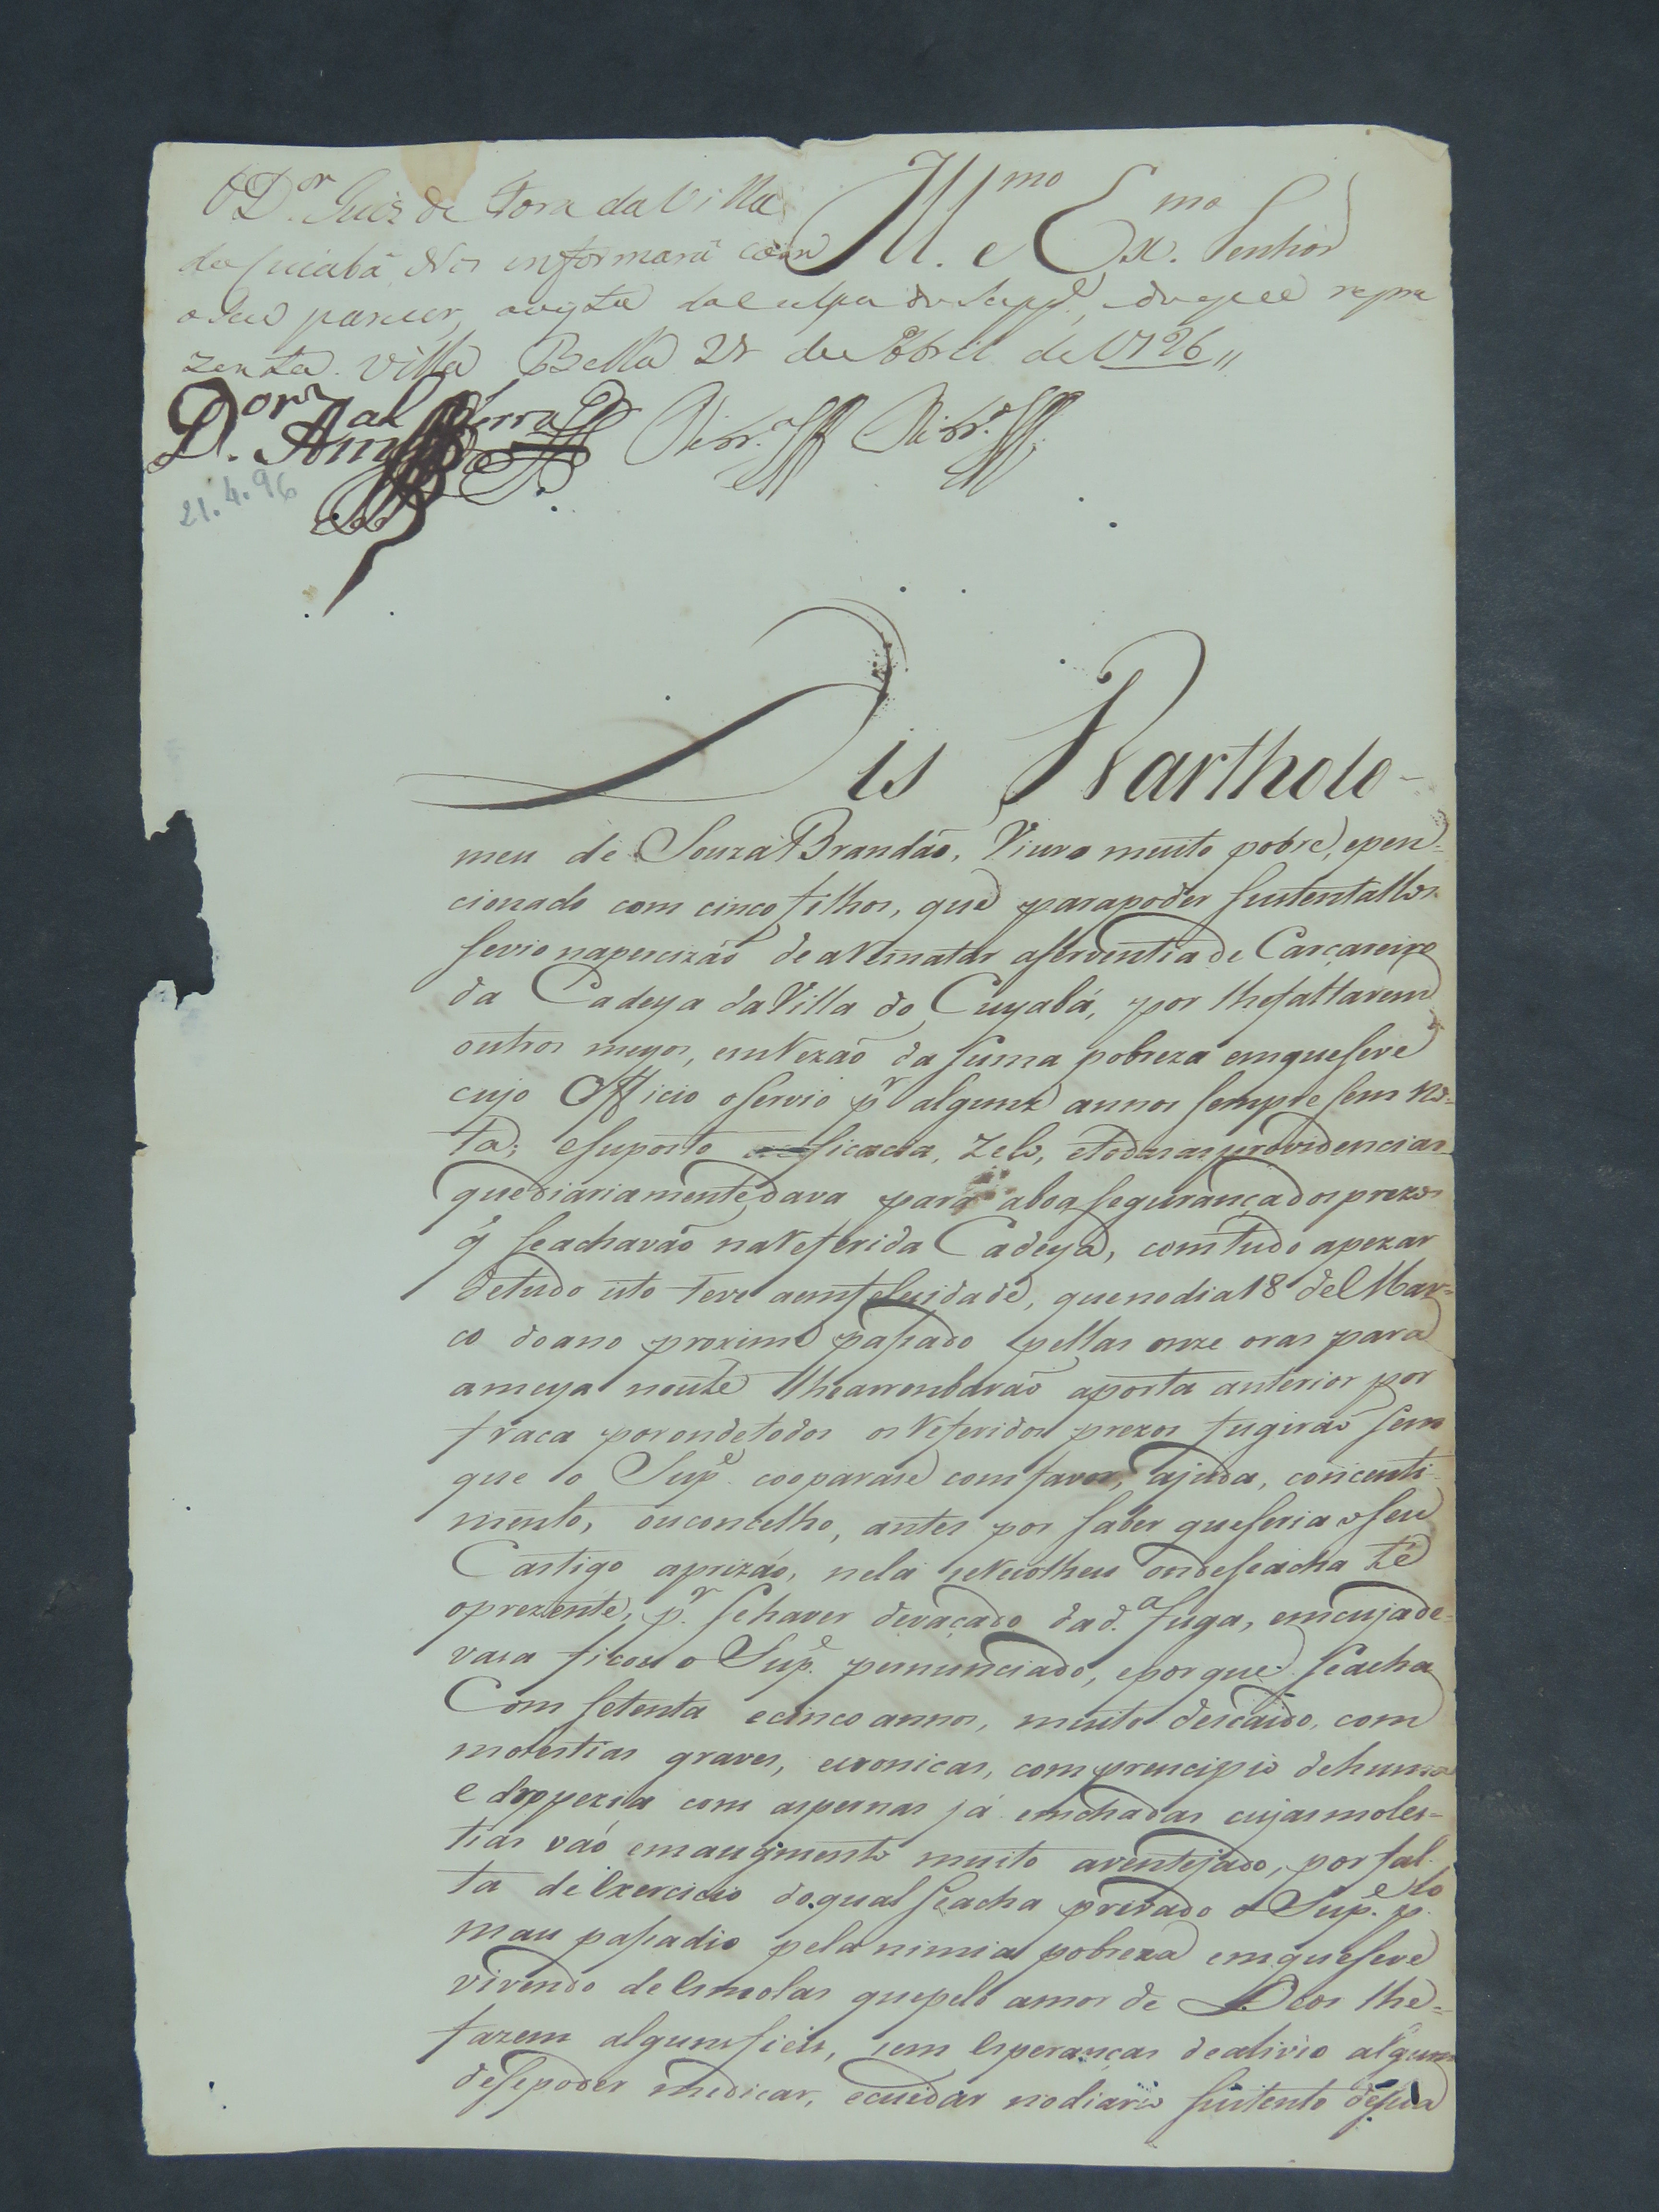 O D.or Juiz de Fora da Villa
do Cuiabá Nos informará com
o seu parecer, avista da culpa do Supp.e, do que repre
zenta. Villa Bella 21 de Abril de 1796 //
D.or Am.al Serra Ribr.o Ribr.o
21.4.96
Ill.mo e Ex.mo Senhor
Dis Bartholo-
meu de Souza Brandão, Viuvo muito pobre, epen-
cionado com cinco filhos, que parapoder sustentallos
sevio napercizão de aRematar aserventia de Carcareiro
da Cadeya da Villa do Cuyabá, por lhefaltarem
outros meyos, emRezão da suma pobreza emqueseve
cujo Officio oservio p.r alguns annos sempre sem no-
ta; esuposto eficacia, Zelo, etodas as providencias
quediariamentedava para aboa segurançadosprezos
q̃ seachavão naReferida Cadeya, comtudo apezar
detudo isto teve aemfelicidade, quenodia 18 de Mar-
co doano proximo pasado pellas onze oras para
ameya noute lhearrombarão aporta anterior por
fraca porondetodos osReferidos prezos fugirão sem
que o Sup.e cooparase comfavor, ajuda, concenti-
mento, ouconcelho, antes por saber queseria oseu
Castigo aprizão, nela seRecolheu ondeseacha té
oprezente, p.r sehaver devaçado dad.a fuga, emcujade-
vasa ficou o Sup.e pernunciado, eporque seacha
Com setenta ecinco annos, muito descaido, com
molestias graves, ecronicas, comprencipio dehuma
edroppezia com aspernas já emchadas cujasmoles-
tias vão emaugmento muito aventejado, porfal-
ta deExercicio doqual seacha privado o Sup.e p.lo
mau pasadio pelanimia pobreza emqueseve
vivendo deEsmolas quepelo amor de Deos lhe-
fazem algunsfieis, sem Esperanças dealivio algum
desepoder medicar, ecuidar nodiario sustento desua